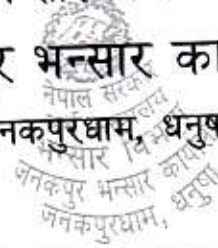 र भन्सार का
नकपुरधाम, धनुष
नेपाल सरकार
भन्सार विभाग
जनकपुर भन्सार कार्यालय
जनकपुरधाम, धनुषा